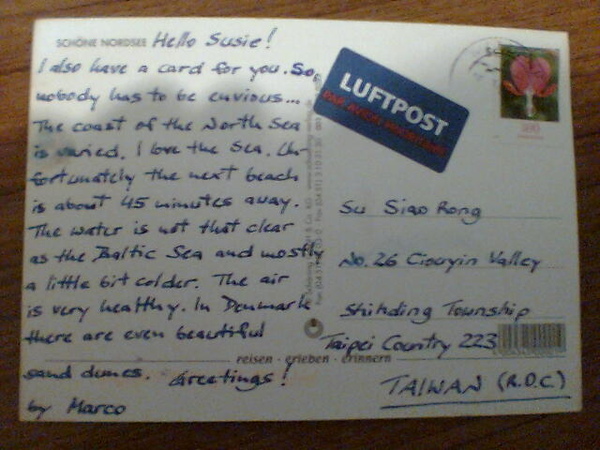 SCHÖNE NORDSEE Hello Susie!
I also have a card for you. So
nobody has to be envious...
The coast of the North Sea
is varied. I love the Sea. Un-
fortunately the next beach
is about 45 minutes away.
The water is not that clear
as the Baltic Sea and mostly
a little bit colder. The air
is very healthy. In Denmark
there are even beautiful
sand dunes. Greetings!
by Marco
reisen · erleben · erinnern
LUFTPOST
PAR AVION PRIORITAIRE
Su Siao Rong
No. 26 Ciouyin Valley
Shihding Township
Taipei Country 223
TAIWAN (R.O.C)